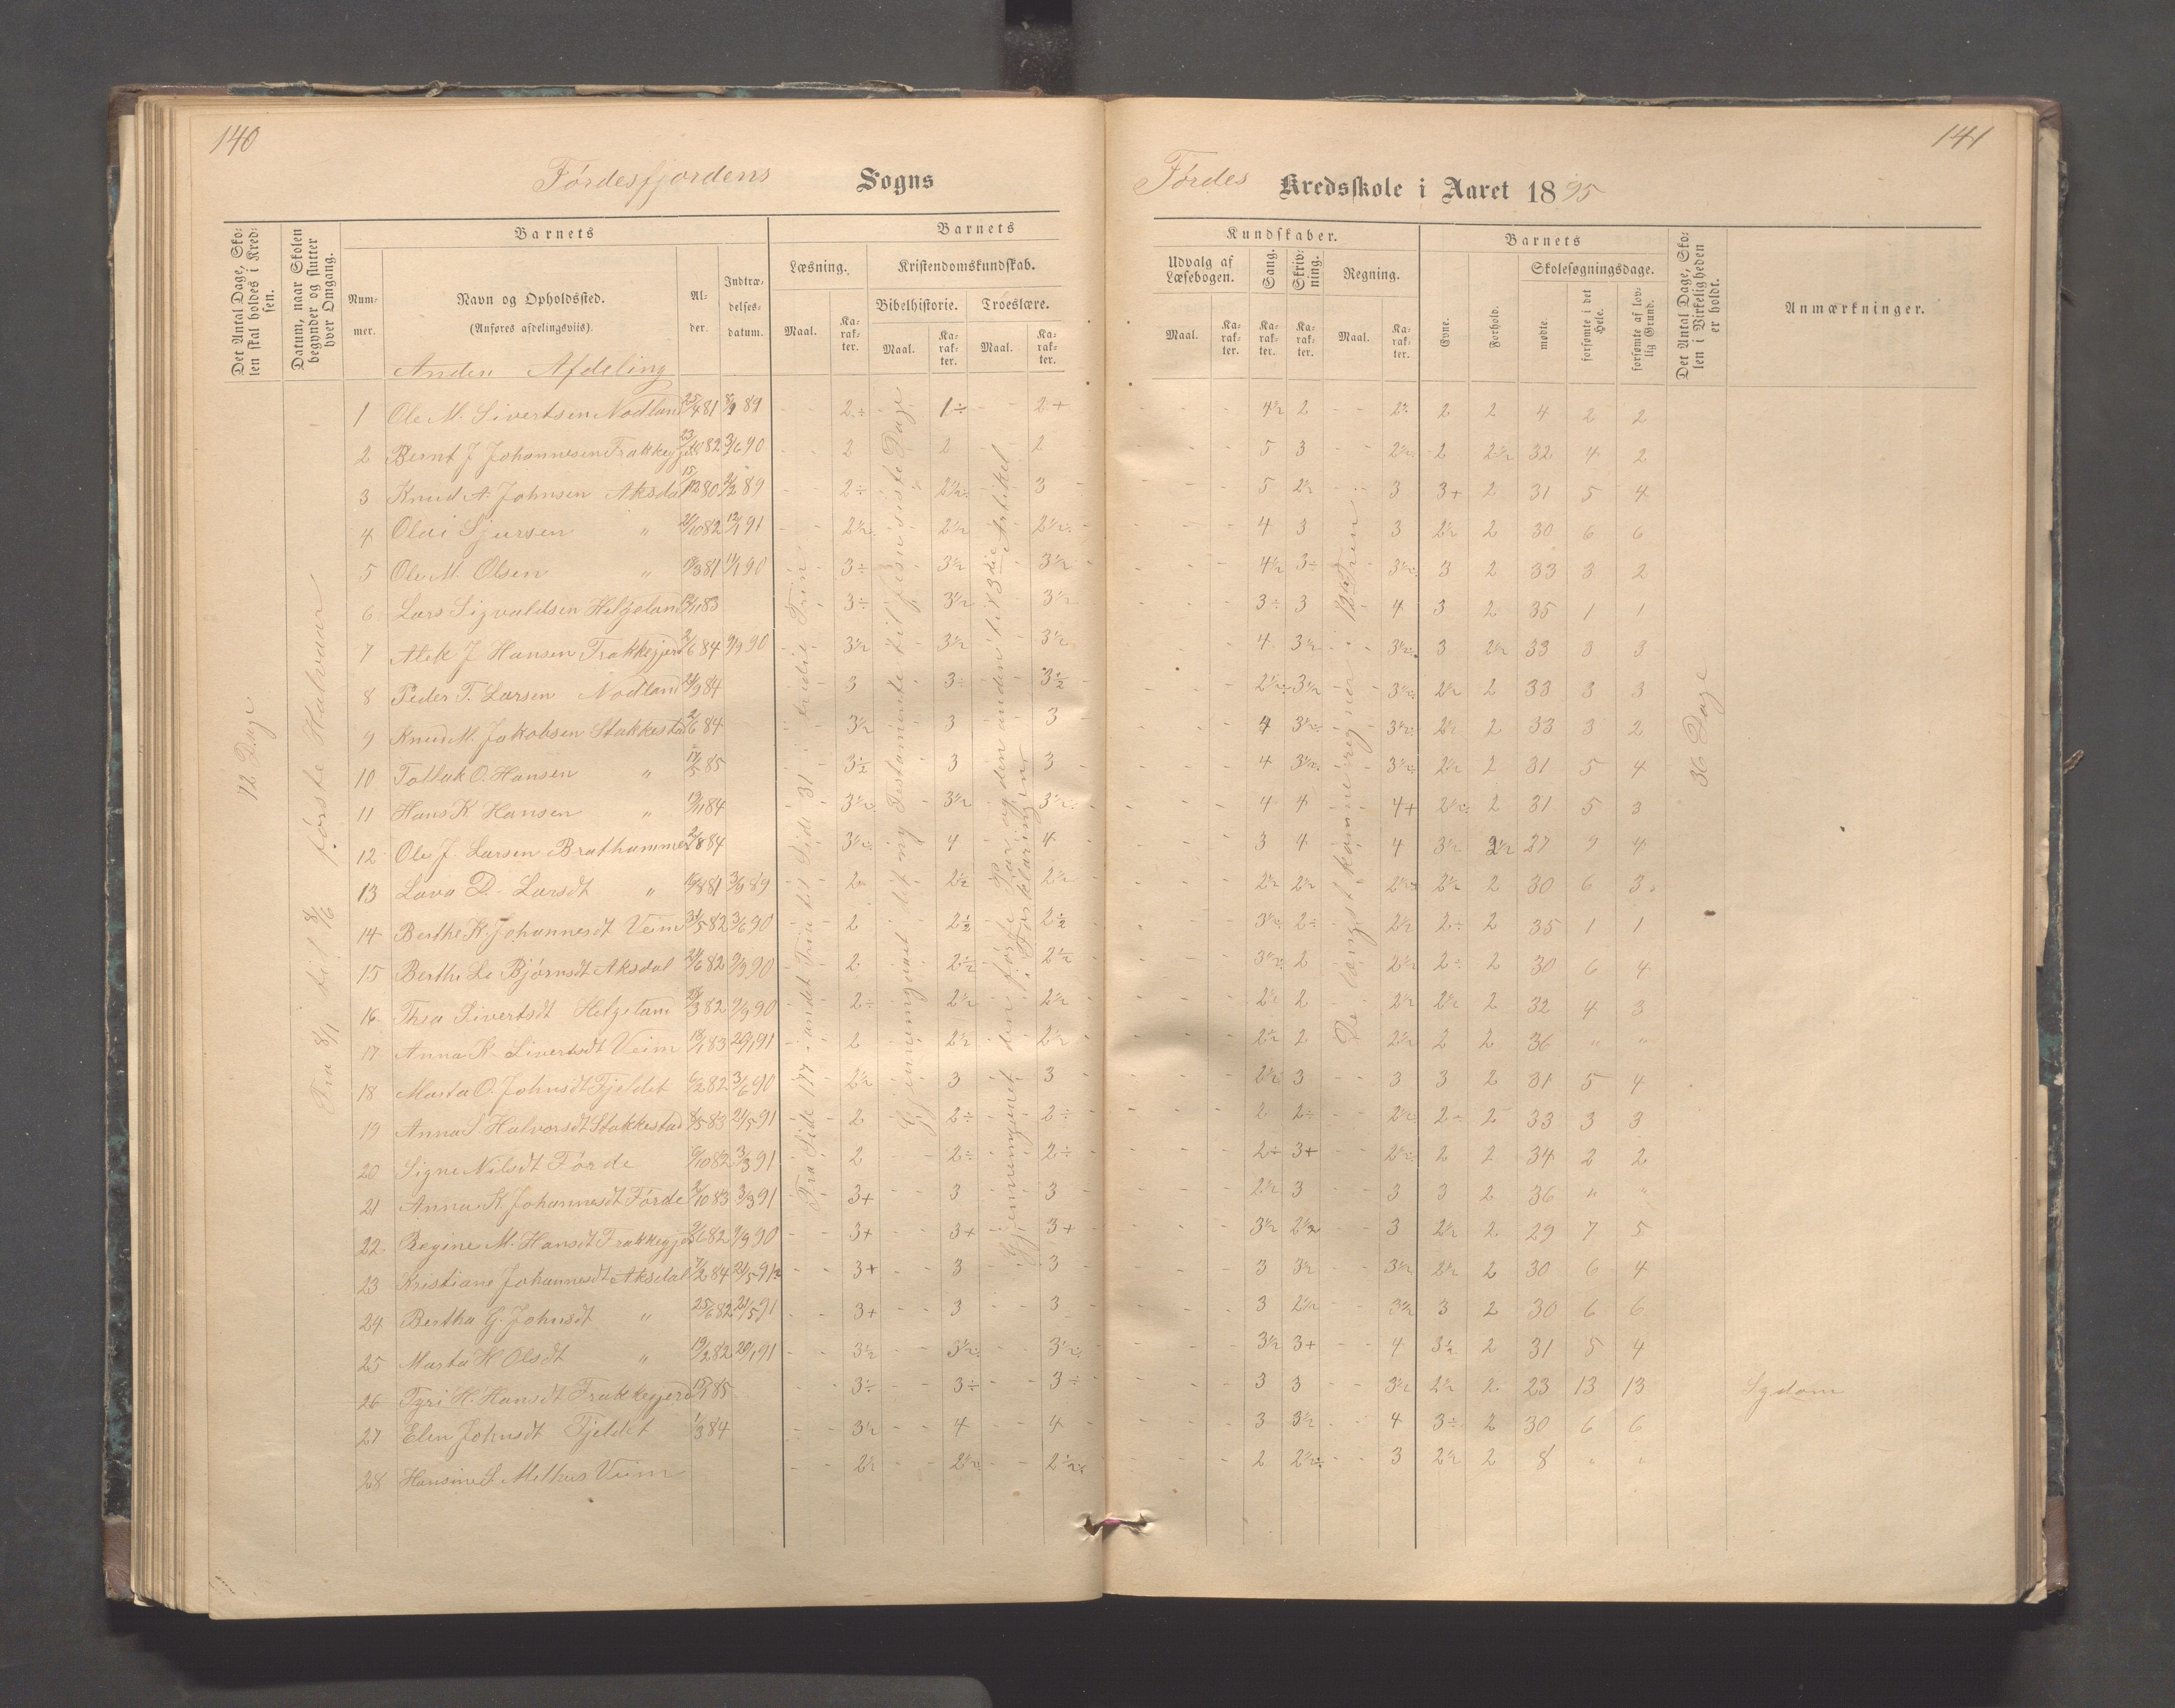 140
141
Fördesfjordens Sogns
Fördes Kredsskole i Aaret 1895
Det Antal Dage, Skolen skal holdes i Kredsen.
Datum, naar Skolen begynder og slutter hver Omgang.
Barnets
Nummer.
Navn og Opholdssted.
(Anføres afdelingsviis).
Alder.
Indtrædelsesdatum.
Barnets
Læsning.
Maal.
Karakter.
Kristendomskundskab.
Bibelhistorie.
Maal.
Karakter.
Troeslære.
Maal.
Karakter.
Kundskaber.
Udvalg af Læsebogen.
Maal.
Karakter.
Sang.
Karakter.
Skrivning.
Karakter.
Regning.
Maal.
Karakter.
Barnets
Evne.
Forhold.
Skolesøgningsdage.
mødte.
forsømte i det Hele.
forsømte af lovlig Grund.
Det Antal Dage, Skolen i Virkeligheden er holdt.
Anmærkninger.
Anden Afdeling
72 Dage
Fra 8/1 til 8/6 første Halvaar
36 Dage
1 Ole M. Sivertsen Nodland 25/4 81 8/1 89 2÷ 1÷ 2+ 4½ 2 2½ 2 2 4 2 2
2 Bernt J Johannesen Frakkegjerd 82 3/6 90 2 2 2 5 3 2½ 2 2½ 32 4 2
3 Knud A. Johnsen Aksdal 15/12 80 89 2÷ 2½÷ 3 5 2½ 3 3+ 2 31 5 4
4 Olai Sjursen " 82 12/1 91 2½ 2½ 2½ 4 3 3 2½ 2 30 6 6
5 Ole M. Olsen " 81 90 3÷ 3½ 3½ 4½ 3÷ 3½ 3 2 33 3 2
6 Lars Sigvaldsen Helgeland 83 3÷ 3½ 3½ 3÷ 3 4 3 2 35 1 1
7 Alek J Hansen Frakkegjerd 84 90 3½ 3½ 3½ 4 3½ 3½ 3 2½ 33 3 3
8 Peder T. Larsen Nodland 84 3 3÷ 3½ 2½ 3½ 3½ 2½ 2 33 3 3
9 Knud M. Jakobsen Stakkestad 2/6 84 3½ 3 3 4 3½ 3½ 2½ 2 33 3 2
10 Tollak O. Hansen " 85 3½ 3 3 4 3½ 3½ 2½ 2 31 5 4
11 Hans K. Hansen " 84 3½ 3½ 3½ 4 4 4+ 2½ 2 31 5 3
12 Ole J. Larsen Brathammer 84 3½ 4 4 3 4 4 3½ 2½ 27 9 4
13 Lava D. Larsdt " 81 3/6 89 2 2½ 2½ 2½ 2½ 2½ 2½ 2 30 6 3
14 Berthe K. Johannesdt Veim 31/5 82 3/6 90 2 2½ 2½ 3½ 2÷ 2½ 2÷ 2 35 1 1
15 Berthe Le Bjørnsdt Aksdal 82 90 2 2½ 2½ 3½ 2 2½ 2÷ 2 30 6 4
16 Thea Sivertsdt Helgeland 82 90 2÷ 2½ 2½ 2½ 2 2½ 2½ 2 32 4 3
17 Anna K. Sivertsdt Veim 83 91 2 2½ 2½ 2÷ 2 2½ 2 2 36 " "
18 Marta O. Johnsdt Fjeldet 82 3/6 90 2½ 3 3 2½ 3 3 3 2 31 5 4
19 Anna S Halvorsdt Stakkestad 83 21/5 91 2 2÷ 2÷ 2 2÷ 2½ 2÷ 2 33 3 3
20 Signe Nilsdt Förde 82 3/3 91 2 2÷ 2÷ 2÷ 3+ 2½ 2 2 34 2 2
21 Anna K. Johannesdt Förde 83 3/3 91 3+ 3 3 2½ 3 3 3 2 36 " "
22 Regine M. Hansdt Frakkegjerd 82 90 3+ 3+ 3+ 3½ 2½ 3 2½ 2 29 7 5
23 Kristiane Johannesdt Aksdal 84 21/5 91 3+ 3 3 3 3½ 3½ 2½ 2 30 6 4
24 Bertha G. Johnsdt " 25/6 82 21/5 91 3+ 3 3 3 2½ 3½ 3 2 30 6 6
25 Marta K Olsdt " 19/2 82 91 3½ 3½ 3½ 3½ 3+ 4 3½ 2 31 5 4
26 Tyri H. Hansdt Frakkegjerd 85 3÷ 3÷ 3÷ 3 3 3½ 2½ 2 23 13 13 Sygdom
27 Elen Johnsdt Fjeldet 1/3 84 3½ 4 4 3 3½ 4 3÷ 2 30 6 6
28 Hansine S. Melhus Veim 2½ 2½ 2½ 2 2½ 3 2½ 2 8 " "
Fra Side 177 i andet Trin til Side 31 i tredie Trin
Gjennemgaaet det ny Testamente til sidste Dage
Gjennemgaaet den første Part og den anden til 3die Artikel i Forklaringen
De længst komne regner i 12te Trin